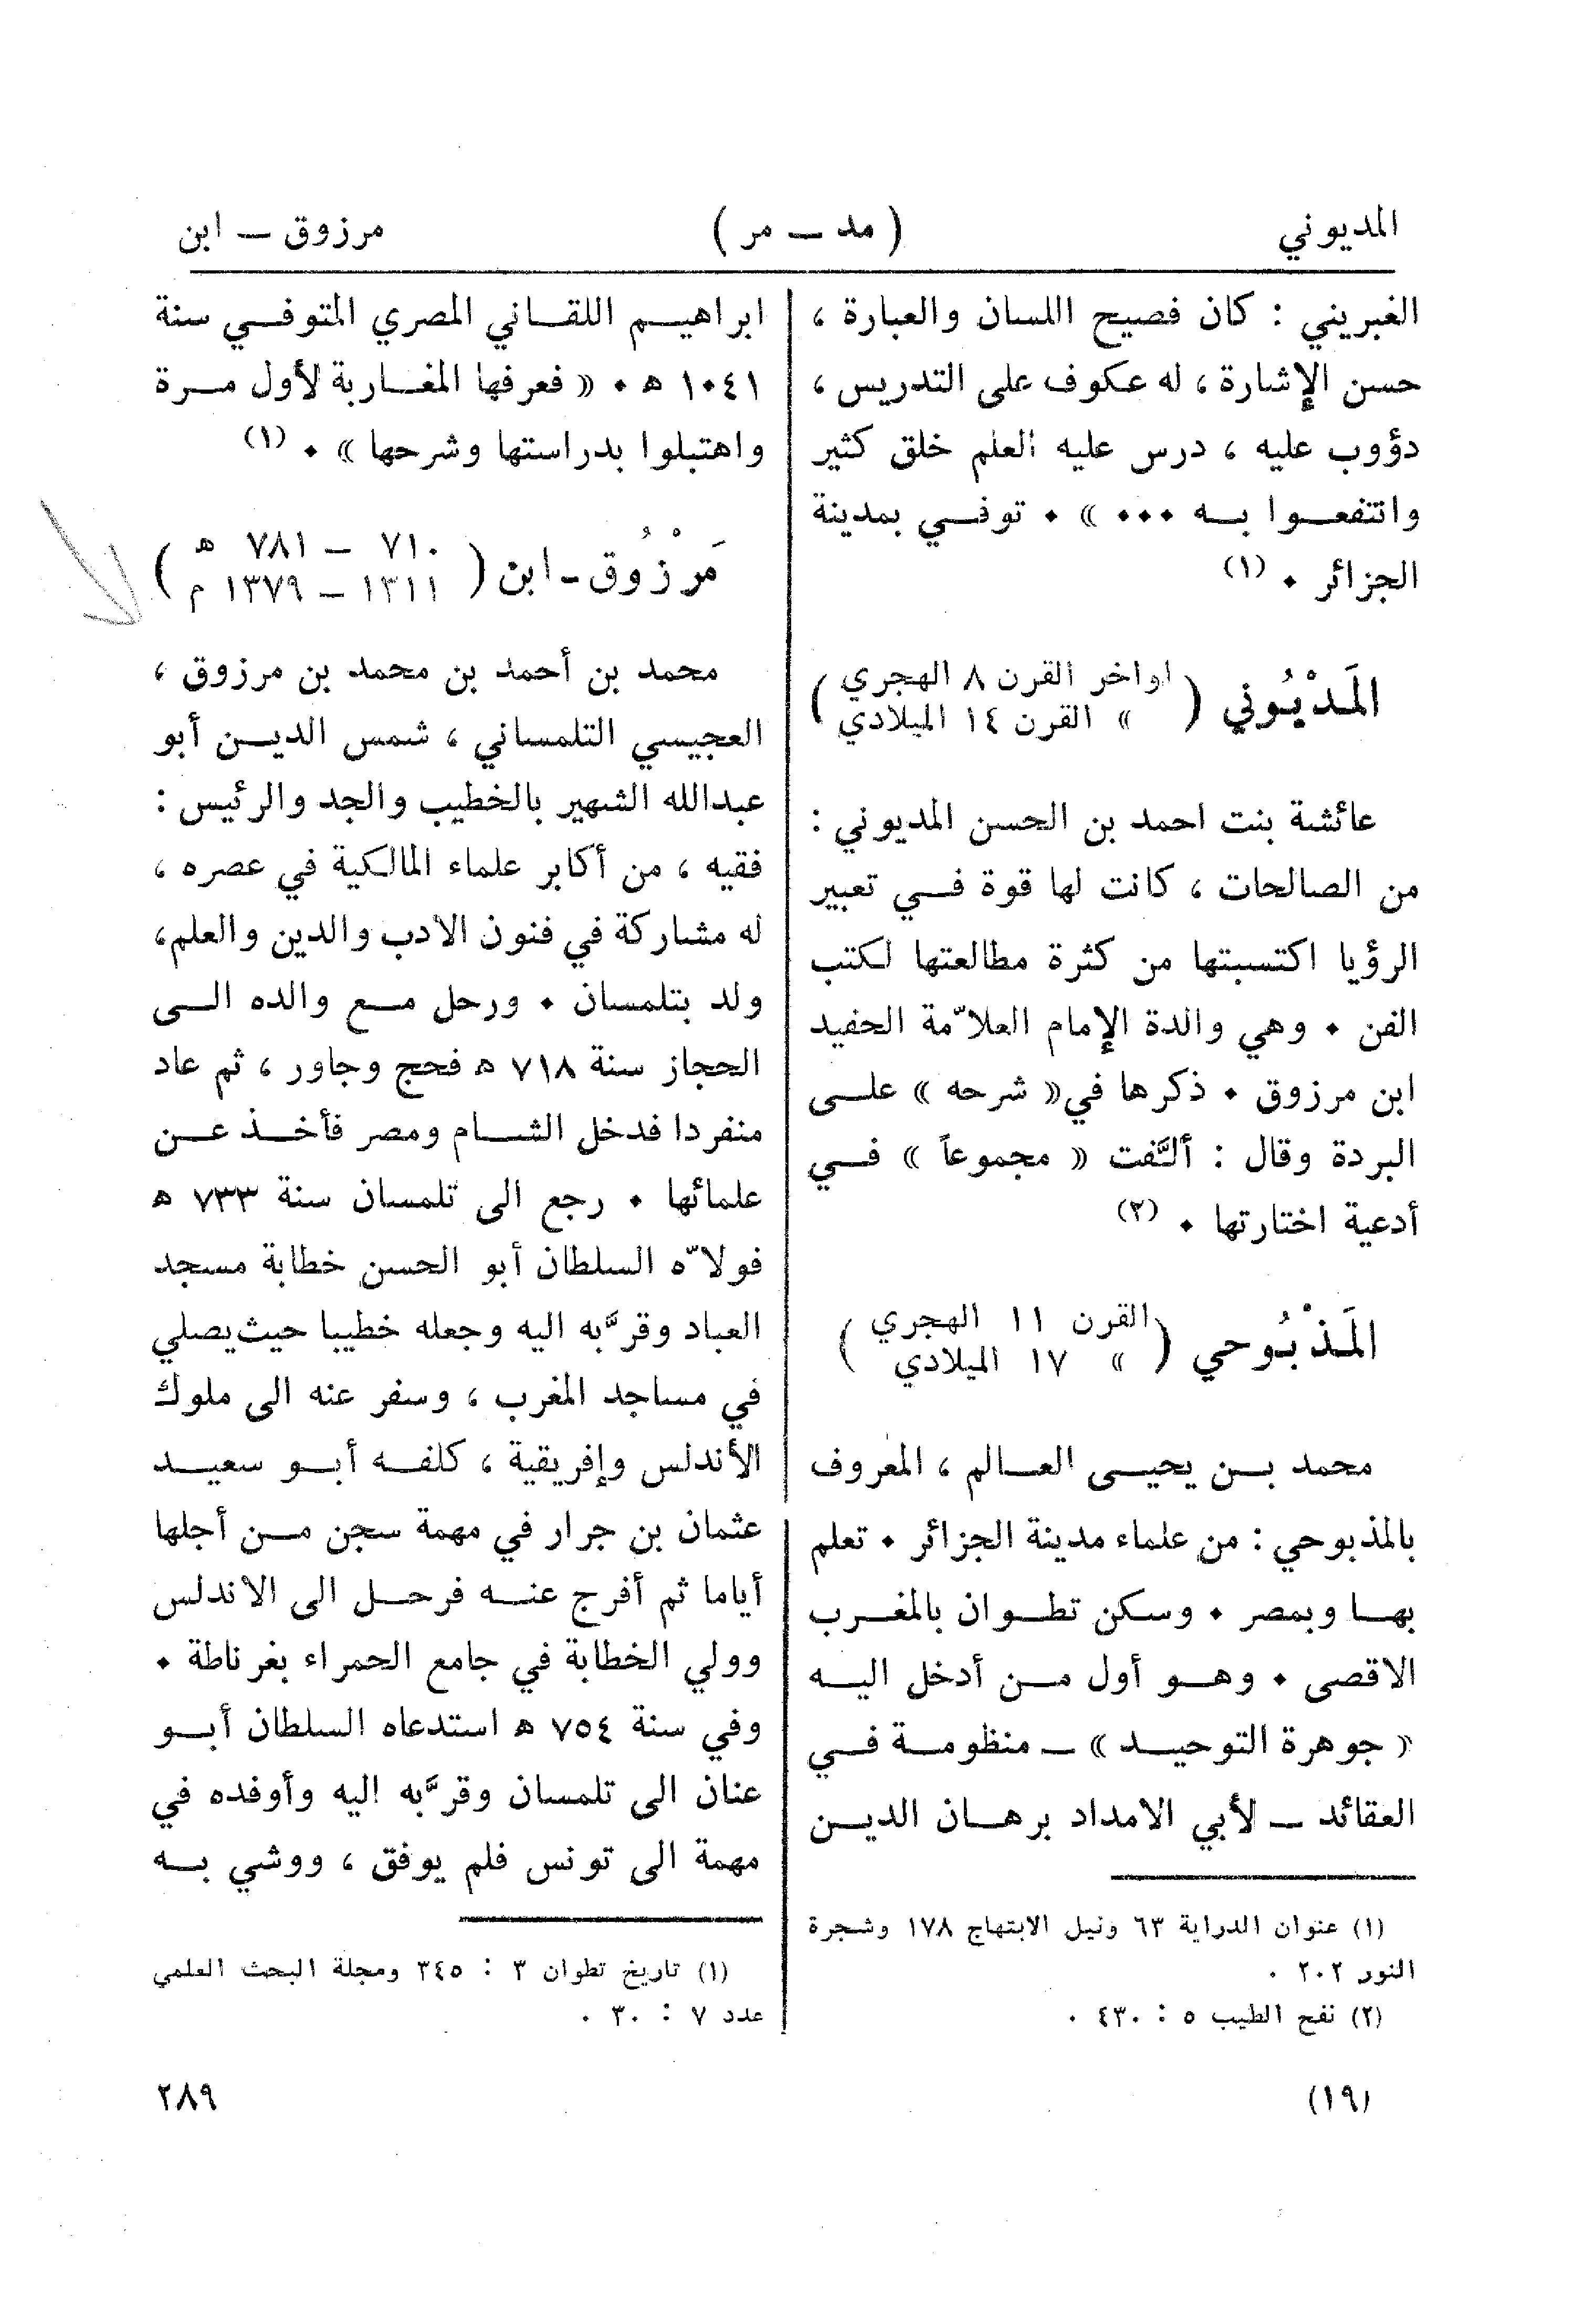 المديوني ( مد – مر ) مرزوق – ابن
الغبريني : كان فصيح اللسان والعبارة ،
حسن الإشارة ، له عكوف على التدريس ،
دؤوب عليه ، درس عليه العلم خلق كثير
وانتفعوا به ••• » • توفي بمدينة
الجزائر • (١)
المَدْيُوني ( اواخر القرن ٨ الهجري
» القرن ١٤ الميلادي )
عائشة بنت احمد بن الحسن المديوني :
من الصالحات ، كانت لها قوة في تعبير
الرؤيا اكتسبتها من كثرة مطالعتها لكتب
الفن • وهي والدة الإمام العلاّمة الحفيد
ابن مرزوق • ذكرها في « شرحه » على
البردة وقال : ألَّفت « مجموعاً » في
أدعية اختارتها • (٢)
المَذْبُوحي ( القرن ١١ الهجري
» ١٧ الميلادي )
محمد بن يحيى العالم ، المعروف
بالمذبوحي : من علماء مدينة الجزائر • تعلم
بها وبمصر • وسكن تطوان بالمغرب
الاقصى • وهو أول من أدخل اليه
« جوهرة التوحيد » – منظومة في
العقائد – لأبي الامداد برهان الدين
(١) عنوان الدراية ٦٣ ونيل الابتهاج ١٧٨ وشجرة
النور ٢٠٢ .
(٢) نفح الطيب ٥ : ٤٣٠ .
ابراهيم اللقاني المصري المتوفي سنة
١٠٤١ هـ • « فعرفها المغاربة لأول مرة
واهتبلوا بدراستها وشرحها » • (١)
مَرْزُوق - ابن ( ٧١٠ – ٧٨١ هـ
١٣١١ – ١٣٧٩ م )
محمد بن أحمد بن محمد بن مرزوق ،
العجيسي التلمساني ، شمس الدين أبو
عبدالله الشهير بالخطيب والجد والرئيس :
فقيه ، من أكابر علماء المالكية في عصره ،
له مشاركة في فنون الادب والدين والعلم،
ولد بتلمسان • ورحل مع والده الى
الحجاز سنة ٧١٨ هـ فحج وجاور ، ثم عاد
منفردا فدخل الشام ومصر فأخذ عن
علمائها • رجع الى تلمسان سنة ٧٣٣ هـ
فولاّه السلطان أبو الحسن خطابة مسجد
العباد وقرَّبه اليه وجعله خطيبا حيث يصلي
في مساجد المغرب ، وسفر عنه الى ملوك
الأندلس وإفريقية ، كلفه أبو سعيد
عثمان بن جرار في مهمة سجن من أجلها
أياما ثم أفرج عنه فرحل الى الاندلس
وولي الخطابة في جامع الحمراء بغرناطة •
وفي سنة ٧٥٤ هـ استدعاه السلطان أبو
عنان الى تلمسان وقرَّبه اليه وأوفده في
مهمة الى تونس فلم يوفق ، ووشي به
(١) تاريخ تطوان ٣ : ٣٤٥ ومجلة البحث العلمي
عدد ٧ : ٣٠ .
(١٩) ٢٨٩